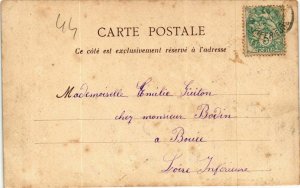 44
CARTE POSTALE
Ce côté est exclusivement réservé à l'adresse
Mademoiselle Emilie
chez monsieur Bodin
a Bouée
Loire Inférieure